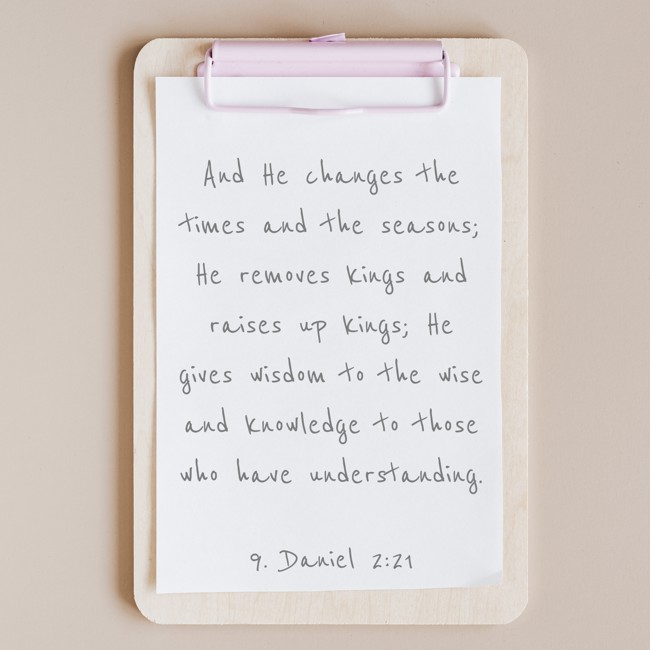 And He changes the
times and the seasons;
He removes kings and
raises up kings; He
gives wisdom to the wise
and knowledge to those
who have understanding.
9. Daniel 2:21